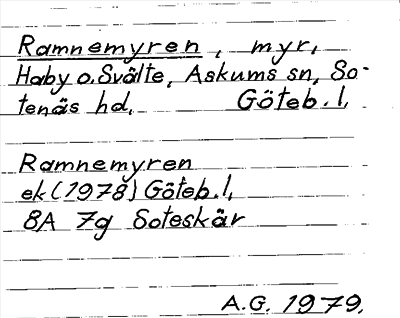 Ramnemyren, myr,
Haby o. Svälte, Askums sn, So-
tenäs hd, Göteb. l,
Ramnemyren
ek (1978) Göteb. l,
8A 7g Soteskär
A.G. 1979.